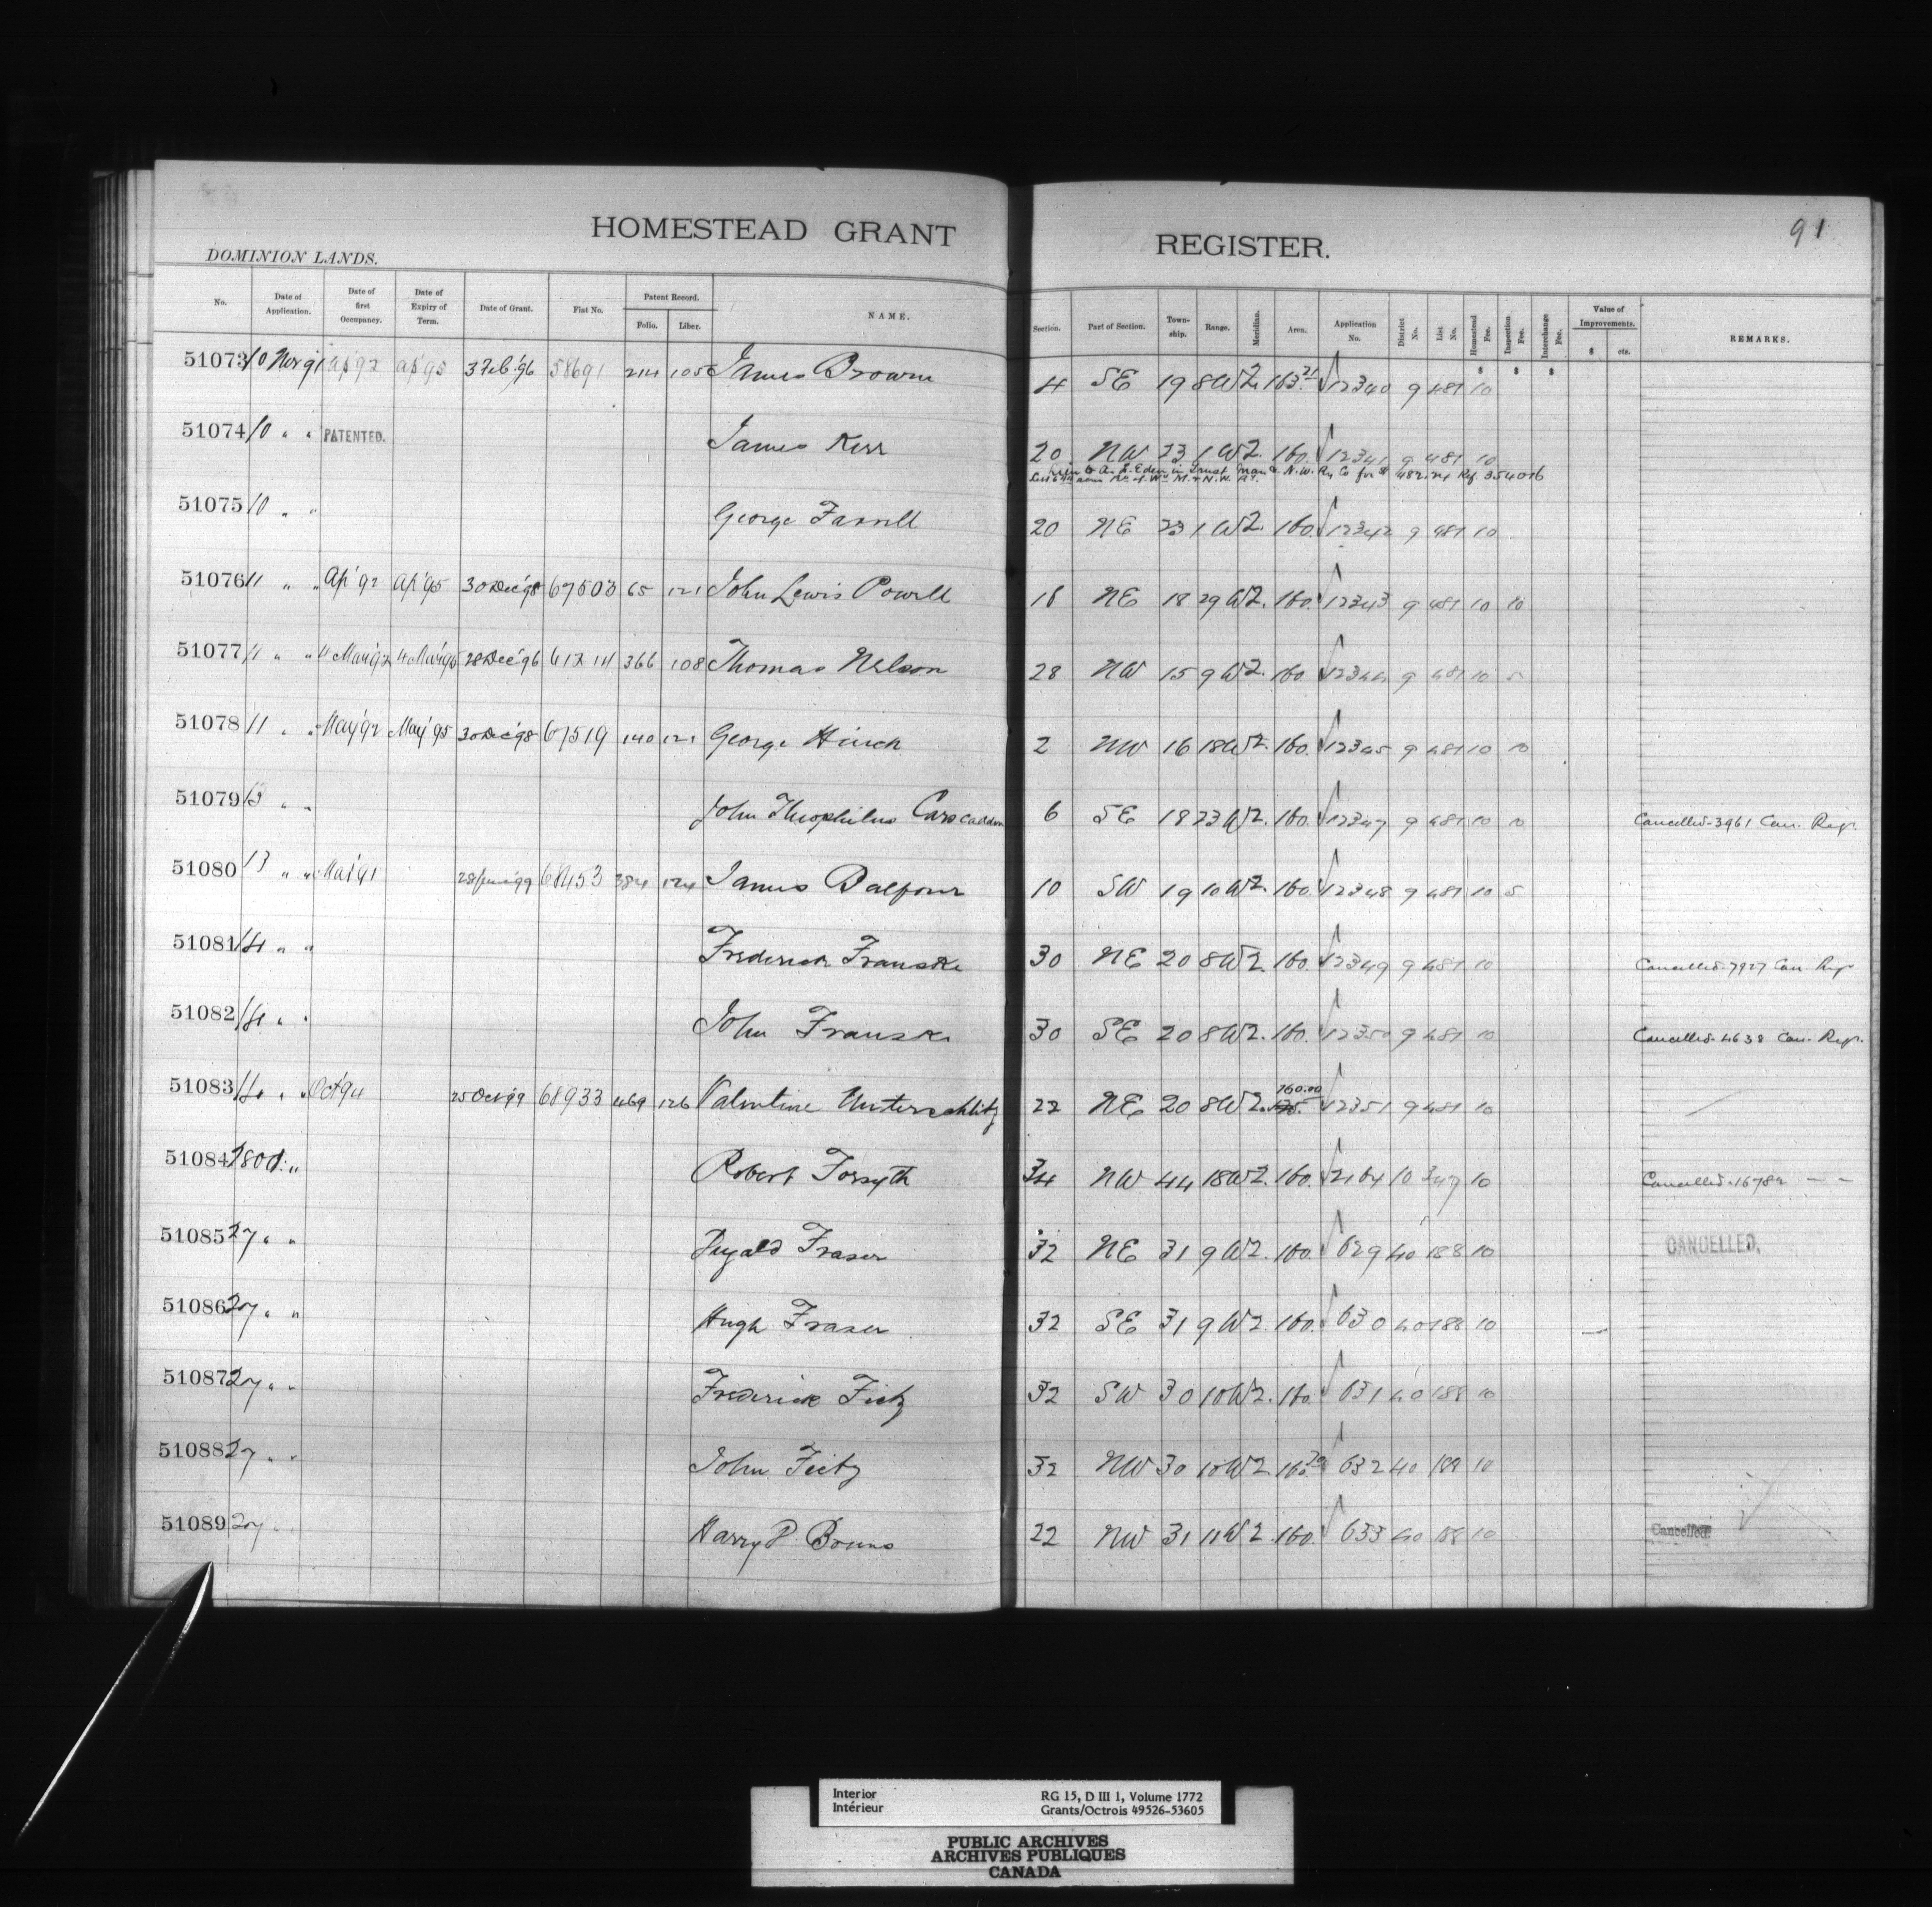 HOMESTEAD GRANT REGISTER.
91
DOMINION LANDS.
No. Date of Application. Date of first Occupancy. Date of Expiry of Term. Date of Grant. Fiat No. Patent Record. Folio. Liber. NAME. Section. Part of Section. Township. Range. Meridian. Area. Application No. District No. List No. Homestead Fee. Inspection Fee. Interchange Fee. Value of Improvements. $ cts. REMARKS.
51073 10 Nov 91 Ap '92 Ap '95 3 Feb '96 58691 214 105 James Brown 4 SE 19 8 W2 163.21 12340 9 481 10
51074 10 " " PATENTED. James Kerr 20 NW 23 1 W2. 160. 12341 9 481 10
Lien to A. F. Eden in Trust Man & N.W. Ry Co for $ Ref. 354016
51075 10 " " George Farrell 20 NE 23 1 W2. 160. 12342 9 481 10
51076 11 " " Ap '92 Ap '95 30 Dec '98 67503 65 121 John Lewis Powell 18 NE 18 29 W2. 160. 12343 9 481 10 10
51077 11 " " 28 Dec '96 366 108 Thomas Nelson 28 NW 15 9 W2. 160. 12344 9 481 10 5
51078 11 " " May '92 May '95 30 Dec '98 67519 140 121 George Hinch 2 NW 16 18 W2. 160. 12345 9 481 10 10
51079 13 " " John Theophilus Carscadden 6 SE 18 23 W2. 160. 12347 9 481 10 10 Cancelled-3961 Can. Regr.
51080 13 " " 28 June '99 68453 384 124 James Balfour 10 SW 19 10 W2. 160. 12348 9 481 10 5
51081 14 " " Frederick Franske 30 NE 20 8 W2. 160. 12349 9 481 10 Cancelled-7927 Can. Regr
51082 14 " " John Franske 30 SE 20 8 W2. 160. 12350 9 481 10 Cancelled-4638 Can. Regr.
51083 14 " " Oct '94 25 Oct '99 68933 469 126 Valentine Unterschlitz 22 NE 20 8 W2. 160.00 12351 9 481 10
51084 " Robert Forsyth 34 NW 44 18 W2. 160. 2164 10 347 10 Cancelled-16782 — —
51085 27 " " Dugald Fraser 32 NE 31 9 W2. 160. 629 40 188 10 CANCELLED.
51086 27 " " Hugh Fraser 32 SE 31 9 W2. 160. 630 40 188 10 —
51087 27 " " Frederick Fietz 32 SW 30 10 W2. 160. 631 40 188 10
51088 27 " " John Fietz 32 NW 30 10 W2. 160.20 632 40 188 10
51089 27 " " Harry P. 22 NW 31 11 W2. 160. 633 40 188 10 Cancelled.
Interior RG 15, D III 1, Volume 1772
Intérieur Grants/Octrois 49526-53605
PUBLIC ARCHIVES
ARCHIVES PUBLIQUES
CANADA